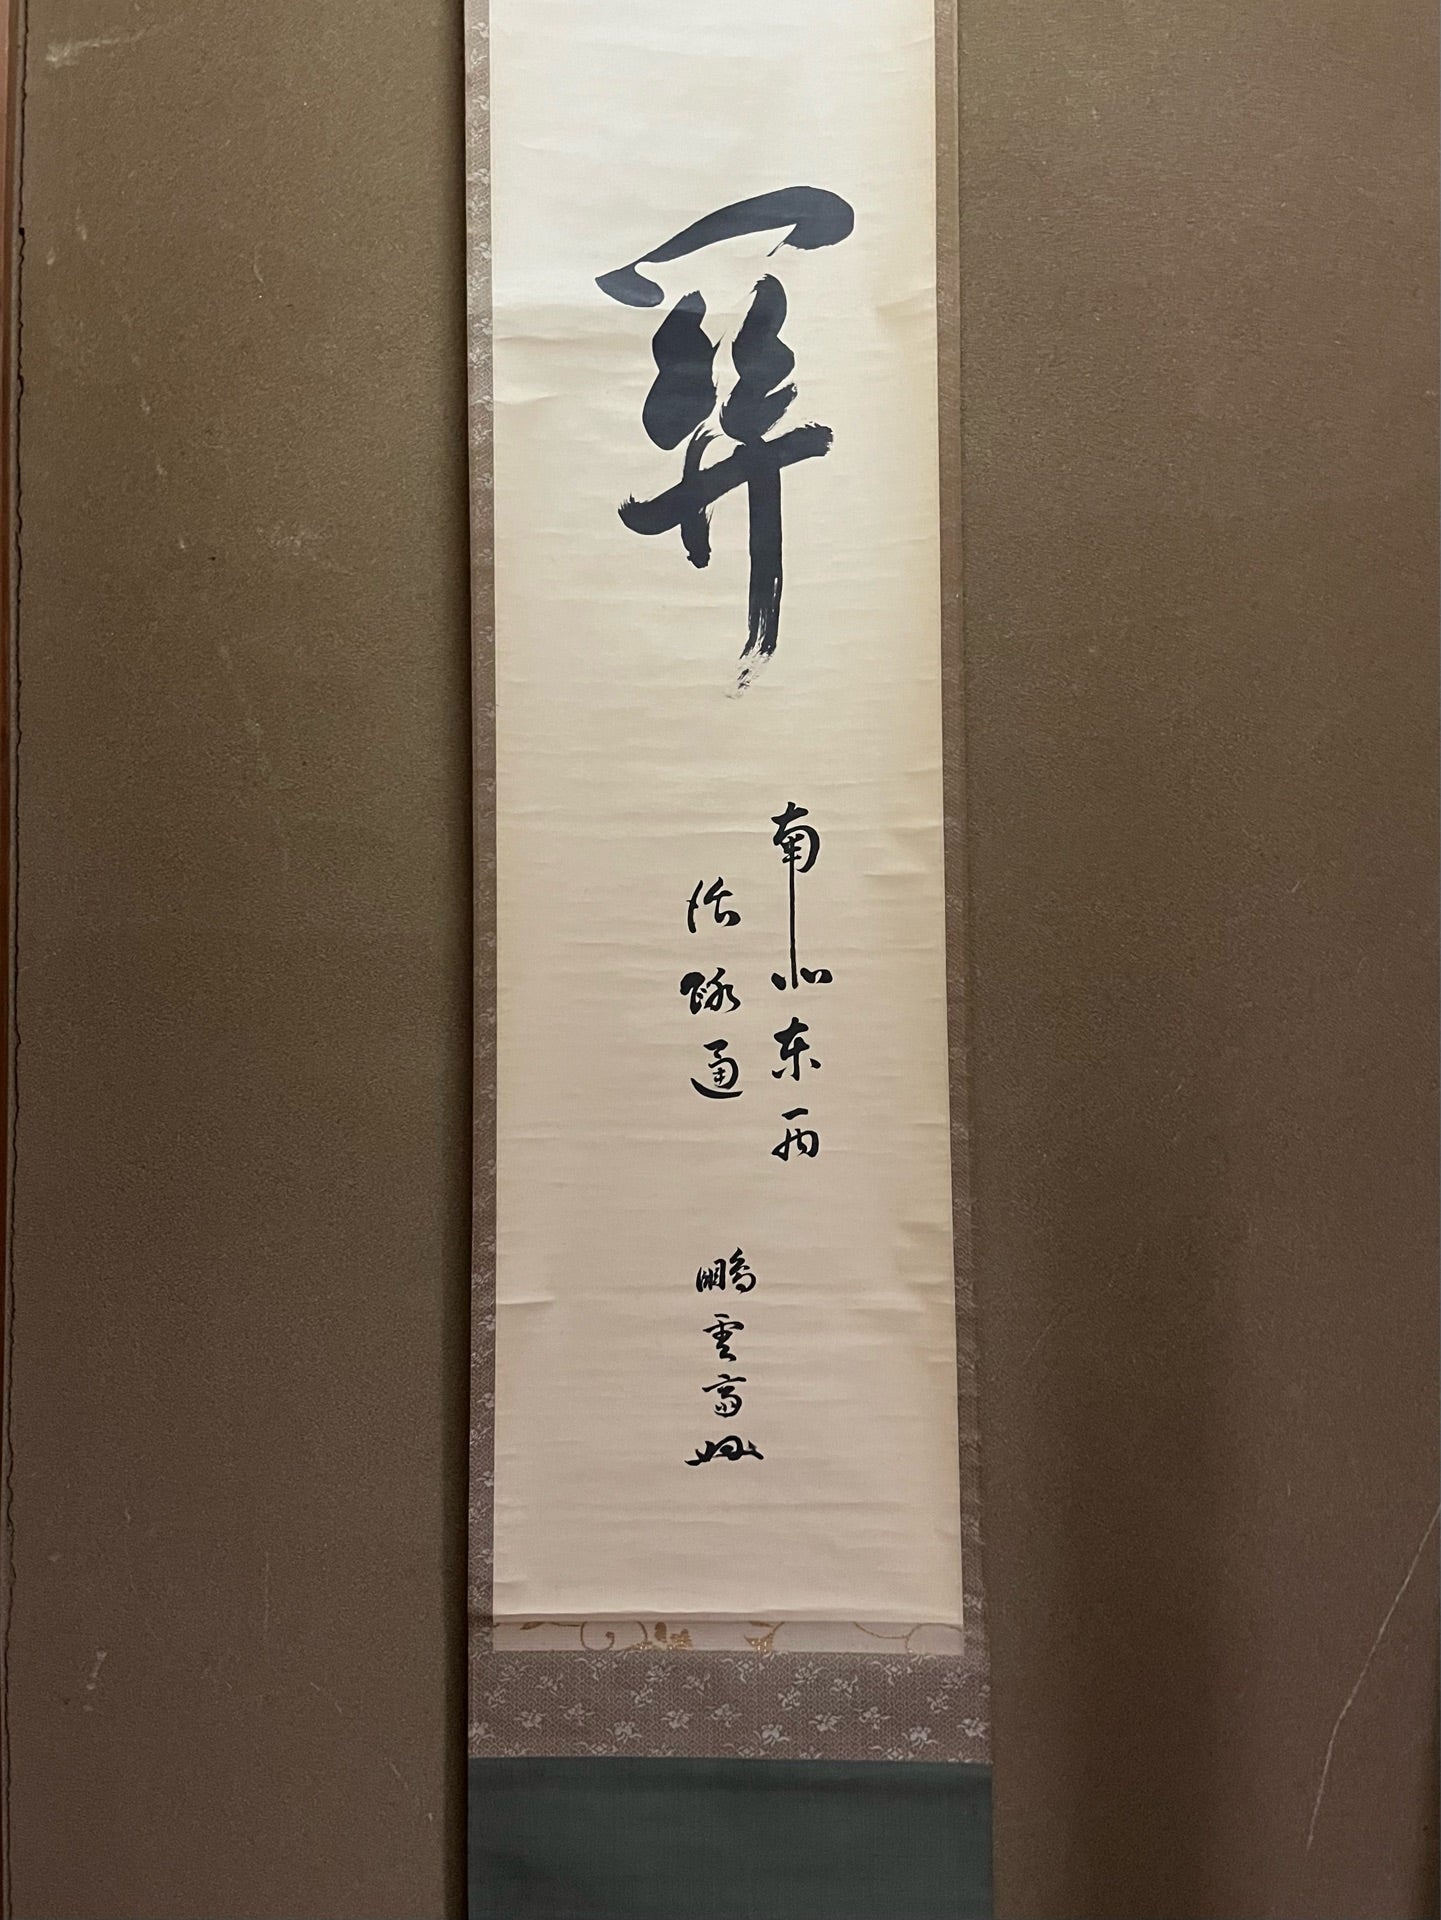 関
南北東西
活路通
鵬雲斎